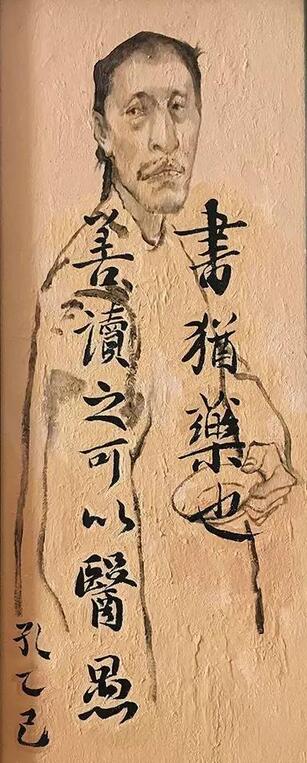 書猶藥也
善讀之可以醫愚
孔乙己